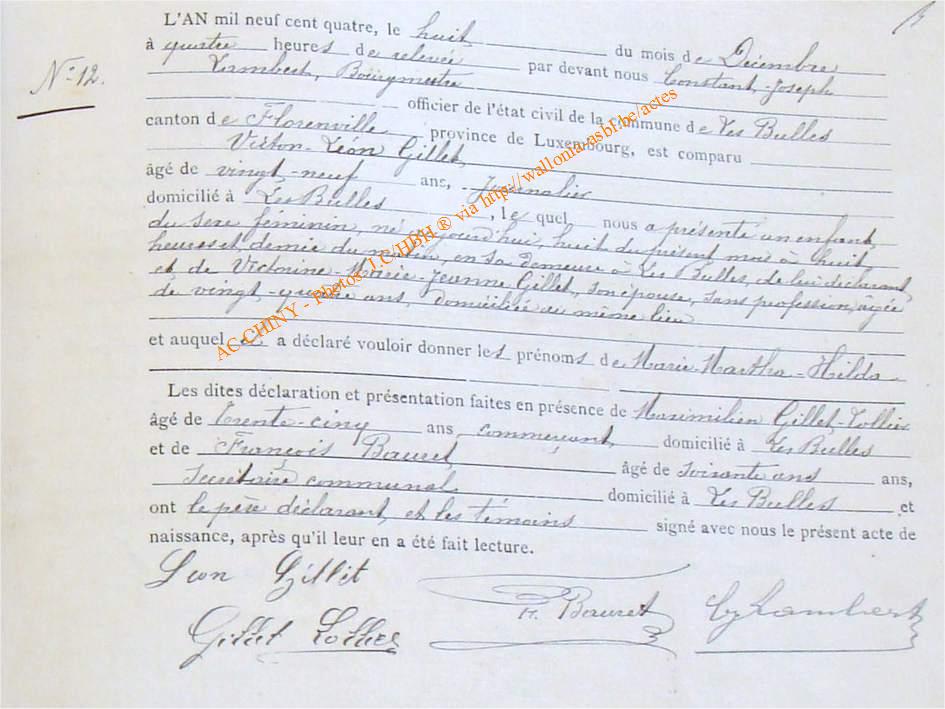 L'AN mil neuf cent quatre, le huit du mois de Décembre
N° 12.
à quatre heures de relevée par devant nous Constant-Joseph
Lambert, Bourgmestre
officier de l'état civil de la commune de Les Bulles
canton de Florenville province de Luxembourg, est comparu
Victor-Léon Gillet
âgé de vingt-neuf ans, Journalier
domicilié à Les Bulles, lequel nous a présenté un enfant
du sexe féminin, né aujourd'hui, huit du présent mois à huit
heures et demie du matin, en sa demeure à Les Bulles, de lui déclarant
et de Victorine-Marie-Jeanne Gillet, son épouse, sans profession, âgée
de vingt-quatre ans, domiciliée au même lieu
et auquel il a déclaré vouloir donner les prénoms de Marie-Martha-Hilda
Les dites déclaration et présentation faites en présence de Maximilien Gillet-Tollier
âgé de trente-cinq ans, commerçant, domicilié à Les Bulles
et de François Bauret âgé de soixante ans ans,
Secrétaire communal domicilié à Les Bulles et
ont le père déclarant et les témoins signé avec nous le présent acte de
naissance, après qu'il leur en a été fait lecture.
Leon Gillet
Gillet F. Bauret Lambert
AC CHINY - Photos J.C/HBH ® via http://wallonia-asbl.be/actes